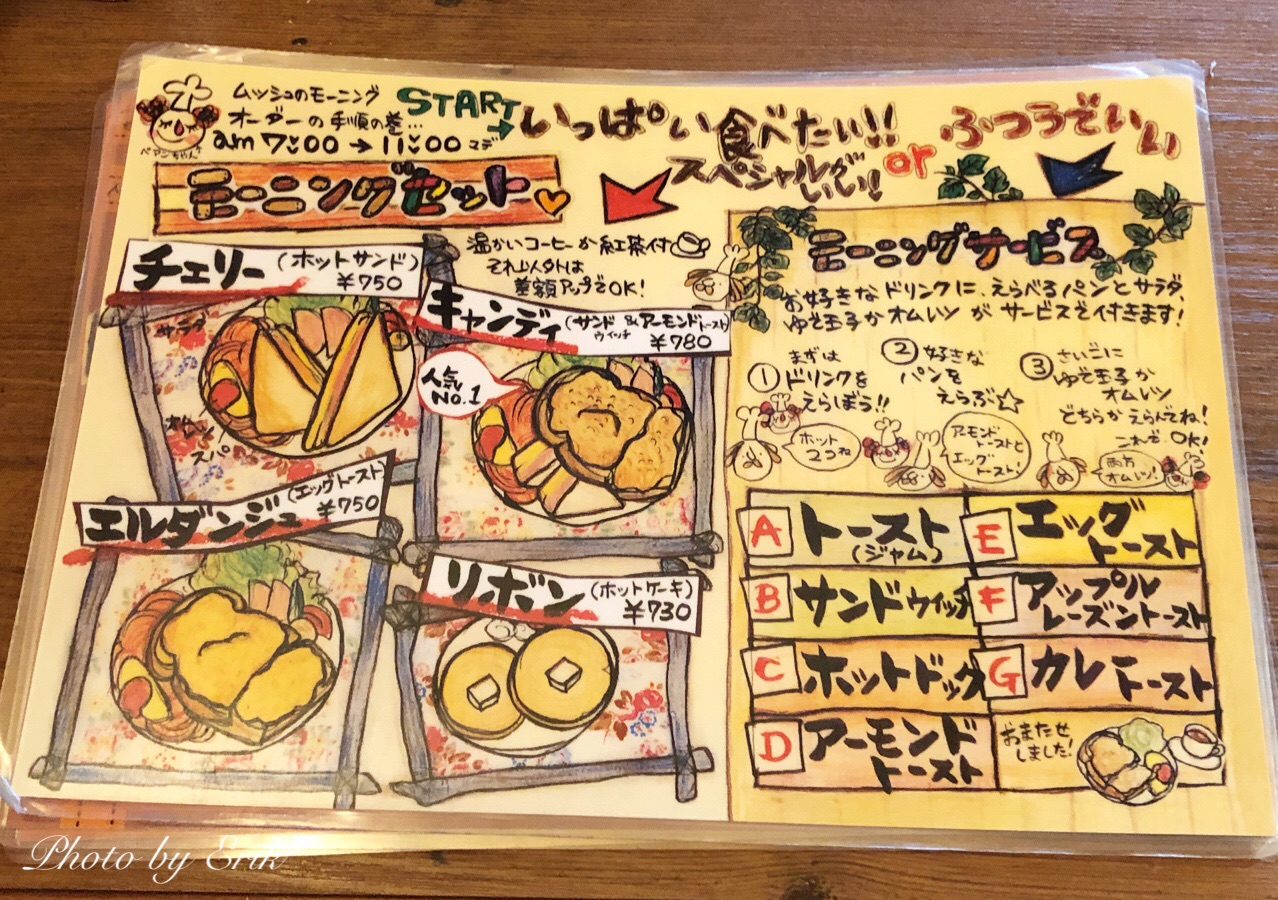 ムッシュのモーニング
オーダーの手順の巻…
am 7:00→11:00マデ
ペアンちゃん
START→
いっぱい食べたい!!
スペシャルがいい!
or
ふつうでいい
モーニングセット
温かいコーヒーか紅茶付
それ以外は
差額アップでOK!
チェリー(ホットサンド)
¥750
サラダ
オムレツ
スパ
キャンディ(サンドウィッチ&アーモンドトースト)
¥780
人気
No.1
エルダンジュ(エッグトースト)
¥750
リボン(ホットケーキ)
¥730
モーニングサービス
お好きなドリンクに、えらべるパンとサラダ、
ゆで玉子かオムレツがサービスで付きます!
① まずは
ドリンクを
えらぼう!!
ホット
2つね
② 好きな
パンを
えらぶ☆
アモンド
トーストと
エッグ
トースト!
③ さいごに
ゆで玉子か
オムレツ
どちらかえらんでね!
これでOK!
両方
オムレツ!
A トースト
(ジャム)
B サンドウィッチ
C ホットドック
D アーモンド
トースト
E エッグ
トースト
F アップル
レーズントースト
G カレー
トースト
おまたせ
しました!
Photo by Erik